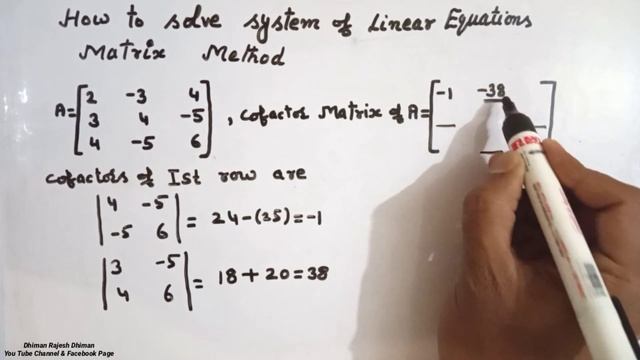 How to solve system of Linear Equations
Matrix Method
A=[2 -3 4
3 4 -5
4 -5 6] , Cofactor Matrix of A=[-1 -38
cofactors of Ist row are
|4 -5
-5 6| = 24-(25)=-1
|3 -5
4 6| = 18+20=38
Dhiman Rajesh Dhiman
You Tube Channel & Facebook Page